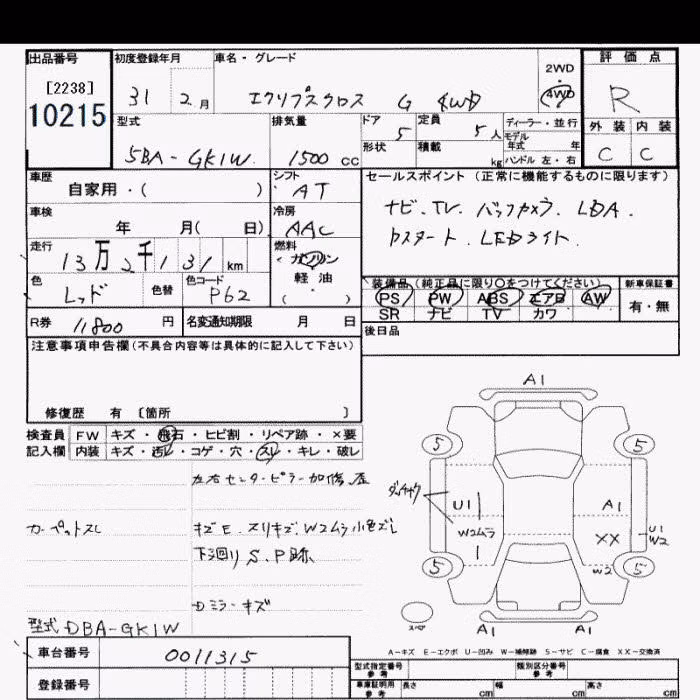 出品番号 初度登録年月 車名・グレード 2WD・4WD 評価点
[2238]
10215
31 2月 エクリプスクロス G 4WD R
型式 排気量 ドア 定員 ディーラー・並行 外装 内装
5BA-GK1W 1500cc 5 5人 モデル年式 年 C C
形状 積載 kg ハンドル 左・右
車歴 シフト セールスポイント(正常に機能するものに限ります)
自家用・( ) AT
ナビ、TV、バックカメラ、LDA、
車検 冷房
年 月( 日) AAC
Pスタート、LEDライト、
走行 燃料
13万2千131km ガソリン・軽油
( ・ )
色 色替 色コード
レッド P62
装備品(純正品に限り○をつけてください) 新車保証書
PS PW ABS エアB AW 有・無
SR ナビ TV カワ
R券 11800円 名変通知期限 月 日
後日品
注意事項申告欄(不具合内容等は具体的に記入して下さい)
修復歴 有 〔箇所 〕
検査員 FW キズ・飛石・ヒビ割・リペア跡・×要
記入欄 内装 キズ・汚レ・コゲ・穴・スレ・キレ・破レ
左右センターピラー加修、歪
カーペットスレ
キズE、スリキズ、W2ムラ小色ズレ
下廻りS、P跡
Dミラーキズ
型式 DBA-GK1W
車台番号 0011315
登録番号
A1
5 5
U1 A1
W2ムラ XX U1
W2
5 W2 5
スペア
A1 A1
A-キズ E-エクボ U-凹み W-補修跡 S-サビ C-腐食 XX-交換済
型式指定番号 参考 類別区分番号 参考
車庫証明用 参考 長さ cm 幅 cm 高さ cm